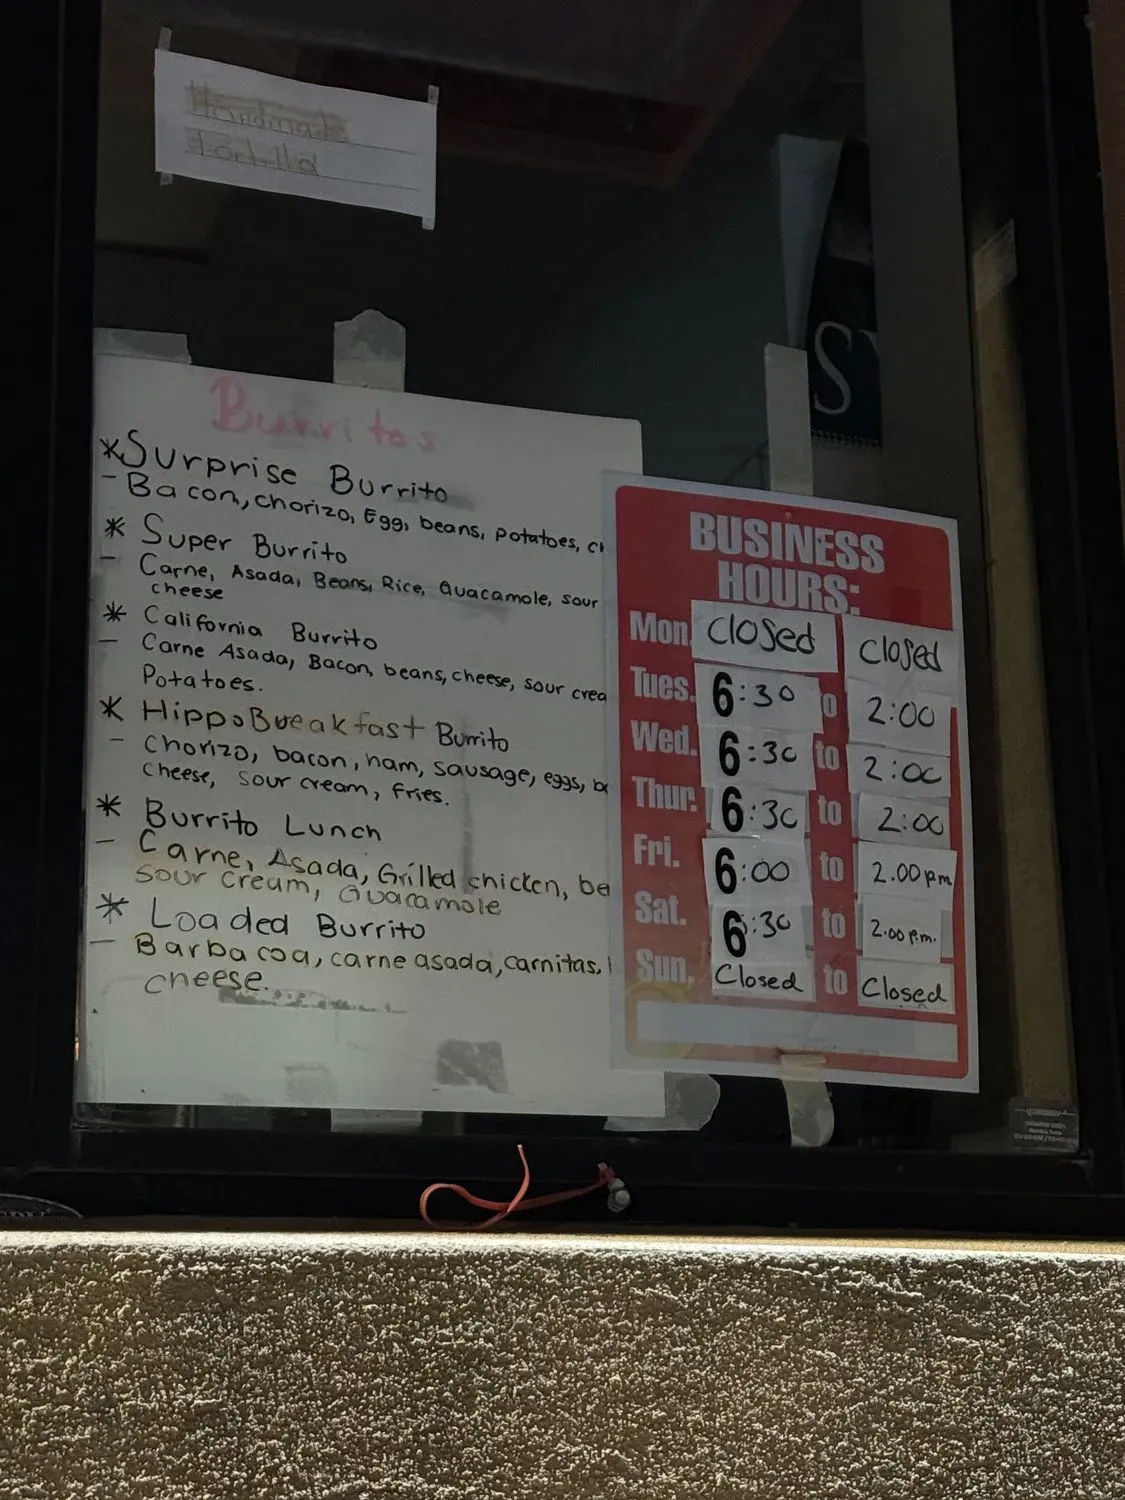 Handmade
Tortilla
Burritos
*Surprise Burrito
- Bacon, chorizo, Egg, beans, potatoes,
* Super Burrito
- Carne, Asada, Beans, Rice, Guacamole, sour
cheese
* California Burrito
- Carne Asada, Bacon, beans, cheese, sour crea
Potatoes.
* HippoBreakfast Burrito
- Chorizo, bacon, ham, sausage, eggs,
cheese, sour cream, fries.
* Burrito Lunch
- Carne, Asada, Grilled chicken, be
sour cream, Guacamole
* Loaded Burrito
- Barbacoa, carne asada, carnitas,
cheese.
BUSINESS
HOURS:
Mon. Closed Closed
Tues. 6:30 to 2:00
Wed. 6:30 to 2:00
Thur. 6:30 to 2:00
Fri. 6:00 to 2.00pm
Sat. 6:30 to 2.00 p.m.
Sun. Closed to Closed